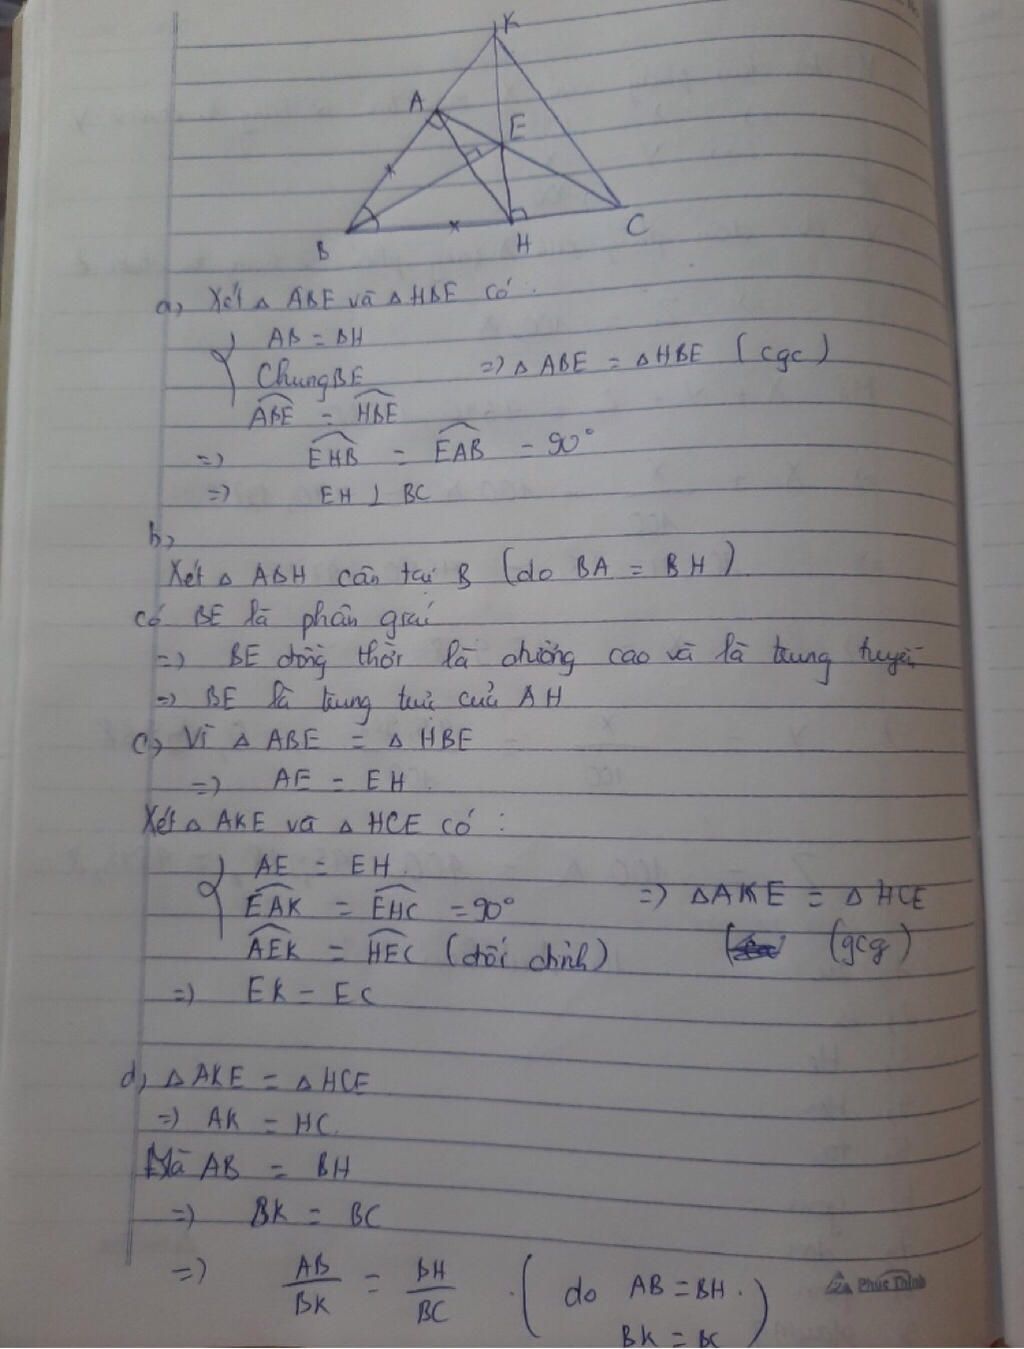 K
A
E
B
H
C
a, Xét △ ABE và △ HBE có :
AB = BH
Chung BE => △ ABE = △ HBE ( cgc )
ABE = HBE
=> EHB = EAB = 90°
=> EH ⊥ BC
b,
Xét △ ABH cân tại B ( do BA = BH )
có BE là phân giác
=> BE đồng thời là đường cao và là trung tuyến
=> BE là trung trực của AH
c, Vì △ ABE = △ HBE
=> AE = EH
Xét △ AKE và △ HCE có :
AE = EH
EAK = EHC = 90° => △ AKE = △ HCE
AEK = HEC ( đối đỉnh ) ( gcg )
=> EK = EC
d, △ AKE = △ HCE
=> AK = HC
Mà AB = BH
=> BK = BC
=> AB/BK = BH/BC ( do AB = BH .
BK = BC )
Phúc Thịnh